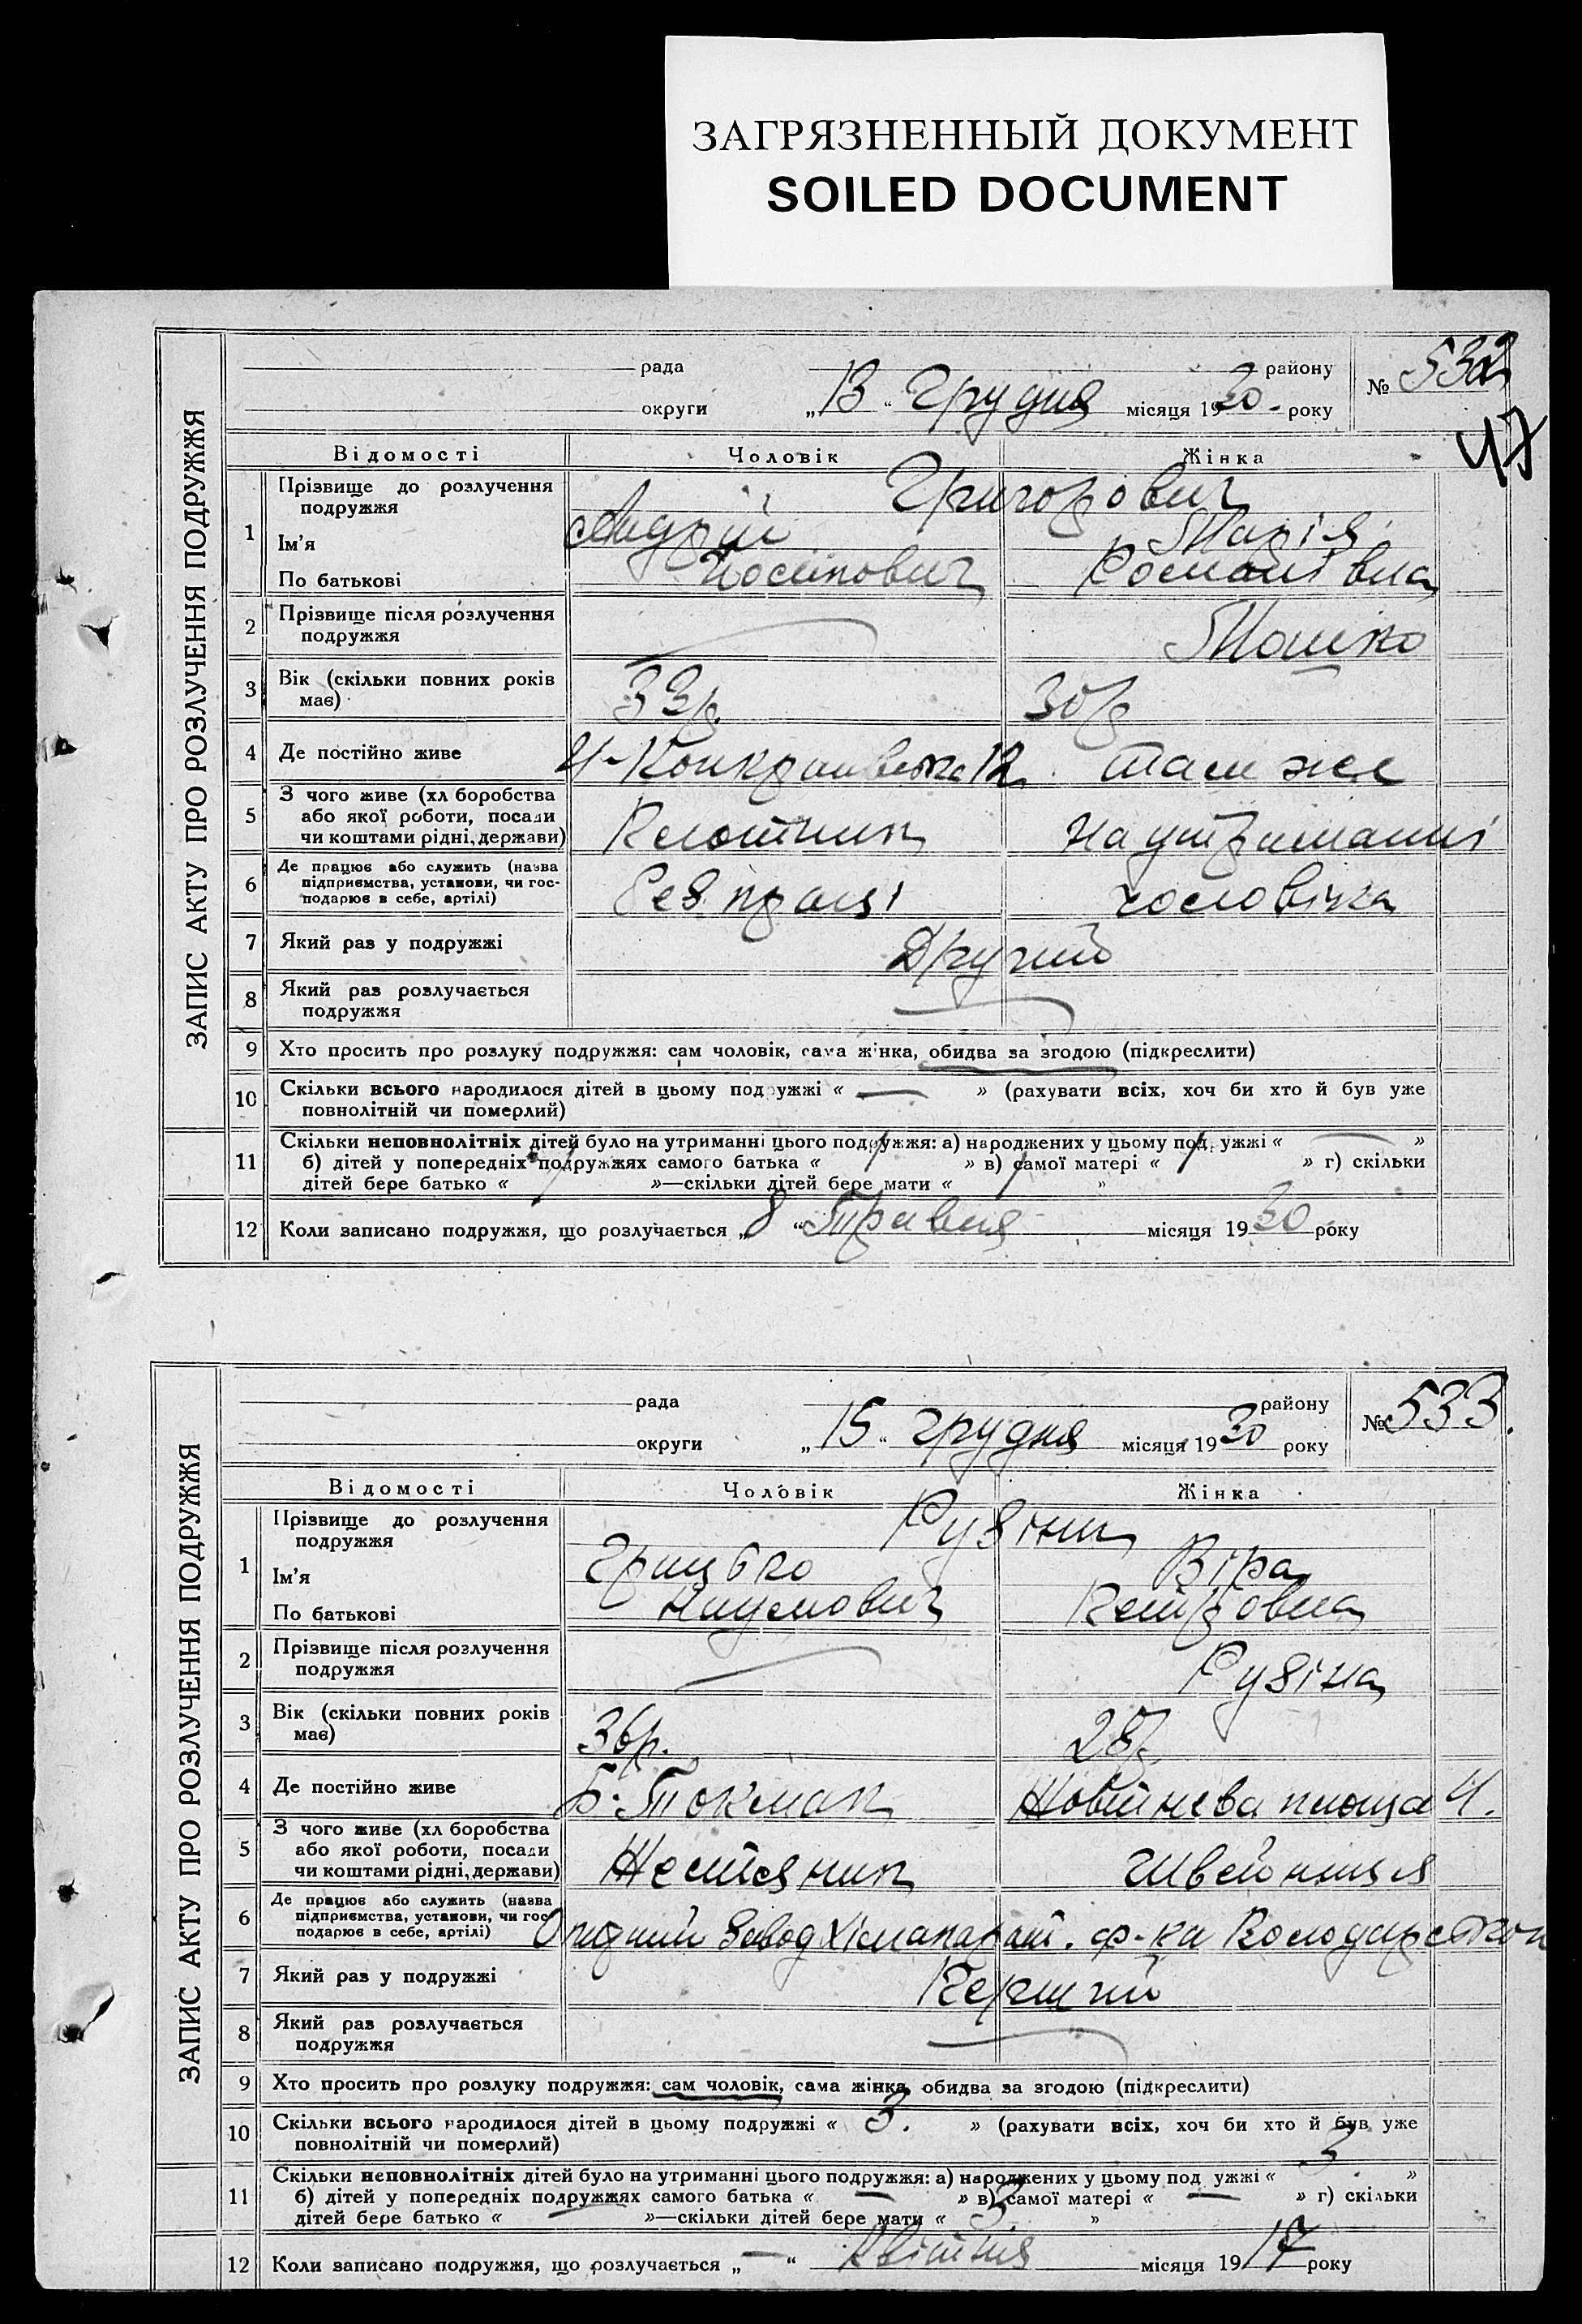 ЗАГРЯЗНЕННЫЙ ДОКУМЕНТ
SOILED DOCUMENT
ЗАПИС АКТУ ПРО РОЗЛУЧЕННЯ ПОДРУЖЖЯ
рада району № 532
округи „13“ Грудня місяця 1930. року
47
Відомості Чоловік Жінка
1 Прізвище до розлучення подружжя Григорович
Ім'я Андрій Марія
По батькові Йосипович Романівна
2 Прізвище після розлучення подружжя — Мошко
3 Вік (скільки повних років має) 33 р. 30 р
4 Де постійно живе 12 там же
5 З чого живе (хл боробства або якої роботи, посади чи коштами рідні, держави) На утриманні
6 Де працює або служить (назва підприємства, установи, чи господарює в себе, артілі) Без праці чоловіка
7 Який раз у подружжі Другий
8 Який раз розлучається подружжя —
9 Хто просить про розлуку подружжя: сам чоловік, сама жінка, обидва за згодою (підкреслити)
10 Скільки всього народилося дітей в цьому подружжі « — » (рахувати всіх, хоч би хто й був уже
повнолітній чи померлий)
11 Скільки неповнолітніх дітей було на утриманні цього подружжя: а) народжених у цьому подружжі « — »
б) дітей у попередніх подружжях самого батька « / » в) самої матері « / » г) скільки
дітей бере батько « / »—скільки дітей бере мати « / »
12 Коли записано подружжя, що розлучається „8“ Травня місяця 1930 року
ЗАПИС АКТУ ПРО РОЗЛУЧЕННЯ ПОДРУЖЖЯ
рада району № 533.
округи „15“ грудня місяця 1930 року
Відомості Чоловік Жінка
1 Прізвище до розлучення подружжя Рузін
Ім'я Грицько Віра
По батькові Наумович Петровна
2 Прізвище після розлучення подружжя — Рузіна
3 Вік (скільки повних років має) 36 р. 28 р.
4 Де постійно живе Б. Токмак Жовтнева площа 4.
5 З чого живе (хл боробства або якої роботи, посади чи коштами рідні, держави) Жестяник Швейниця
6 Де працює або служить (назва підприємства, установи, чи господарює в себе, артілі) завод Хімапарат. ф-ка
7 Який раз у подружжі Перший
8 Який раз розлучається подружжя —
9 Хто просить про розлуку подружжя: сам чоловік, сама жінка, обидва за згодою (підкреслити)
10 Скільки всього народилося дітей в цьому подружжі « 3. » (рахувати всіх, хоч би хто й був уже
повнолітній чи померлий)
11 Скільки неповнолітніх дітей було на утриманні цього подружжя: а) народжених у цьому подружжі « 3 »
б) дітей у попередніх подружжях самого батька « — » в) самої матері « — » г) скільки
дітей бере батько « — »—скільки дітей бере мати « 3 »
12 Коли записано подружжя, що розлучається „—“ Квітня місяця 1917 року